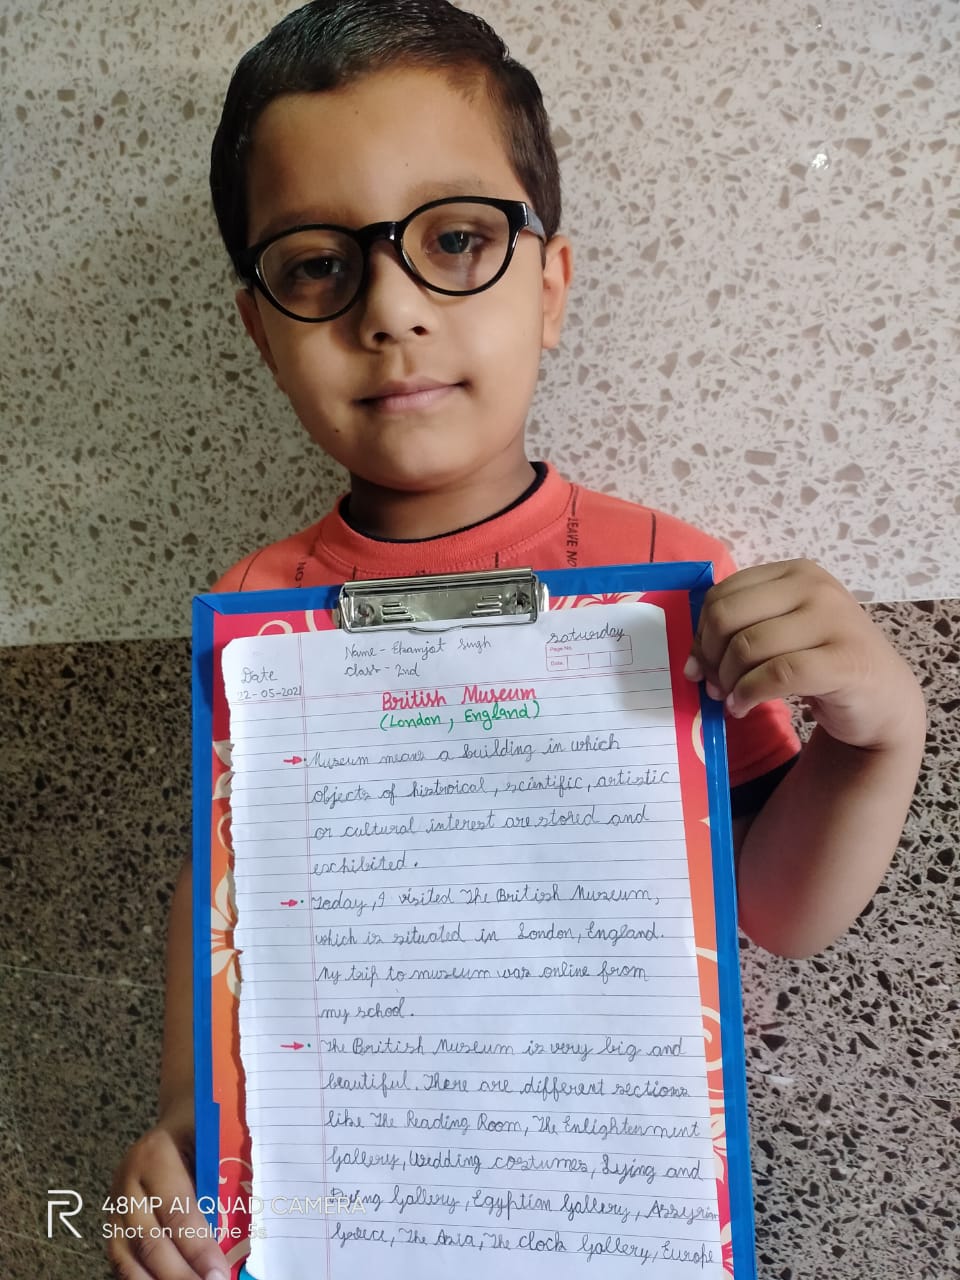 LEAVE NO
NO
Name - Ekamjot Singh
Saturday
Class - 2nd
Page No.
Date
Date
22-05-2021
British Museum
(London, England)
Museum means a building in which
objects of histroical, scientific, artistic
or cultural interest are stored and
exchibited.
Today, I visited The British Museum,
which is situated in London, England.
My trip to museum was online from
my school.
The British Museum is very big and
beautiful. There are different sections
like The Reading Room, The Enlightenment
Gallery, Wedding costumes, Lying and
Dying Gallery, Egyptian Gallery, Assyrian
Greece, The Asia, The Clock Gallery, Europe
R
48MP AI QUAD CAMERA
Shot on realme 5s